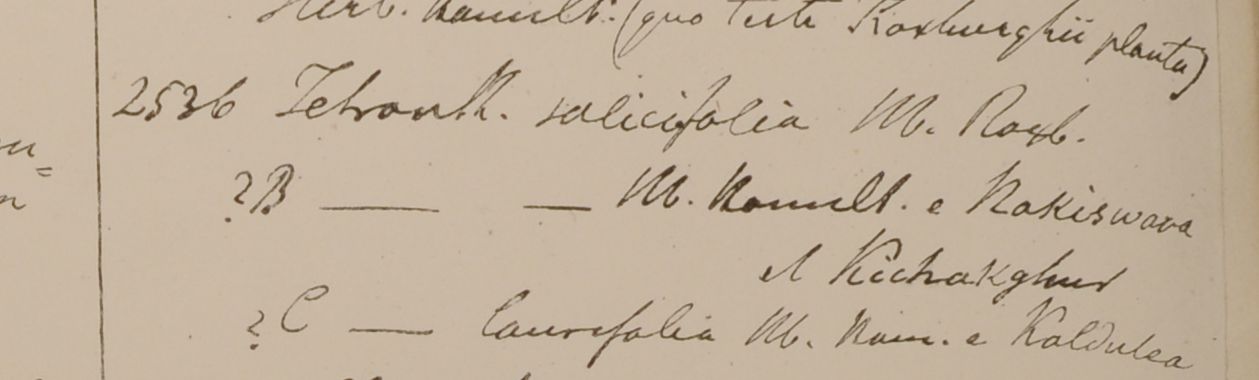 Herb. Hamilt. (quo teste Roxburghii planta)
2536 Tetranth. salicifolia H. Roxb.
?B — — H. Hamilt. e Nakiswara
et Kichakghur
?C — laurifolia H. Ham. e